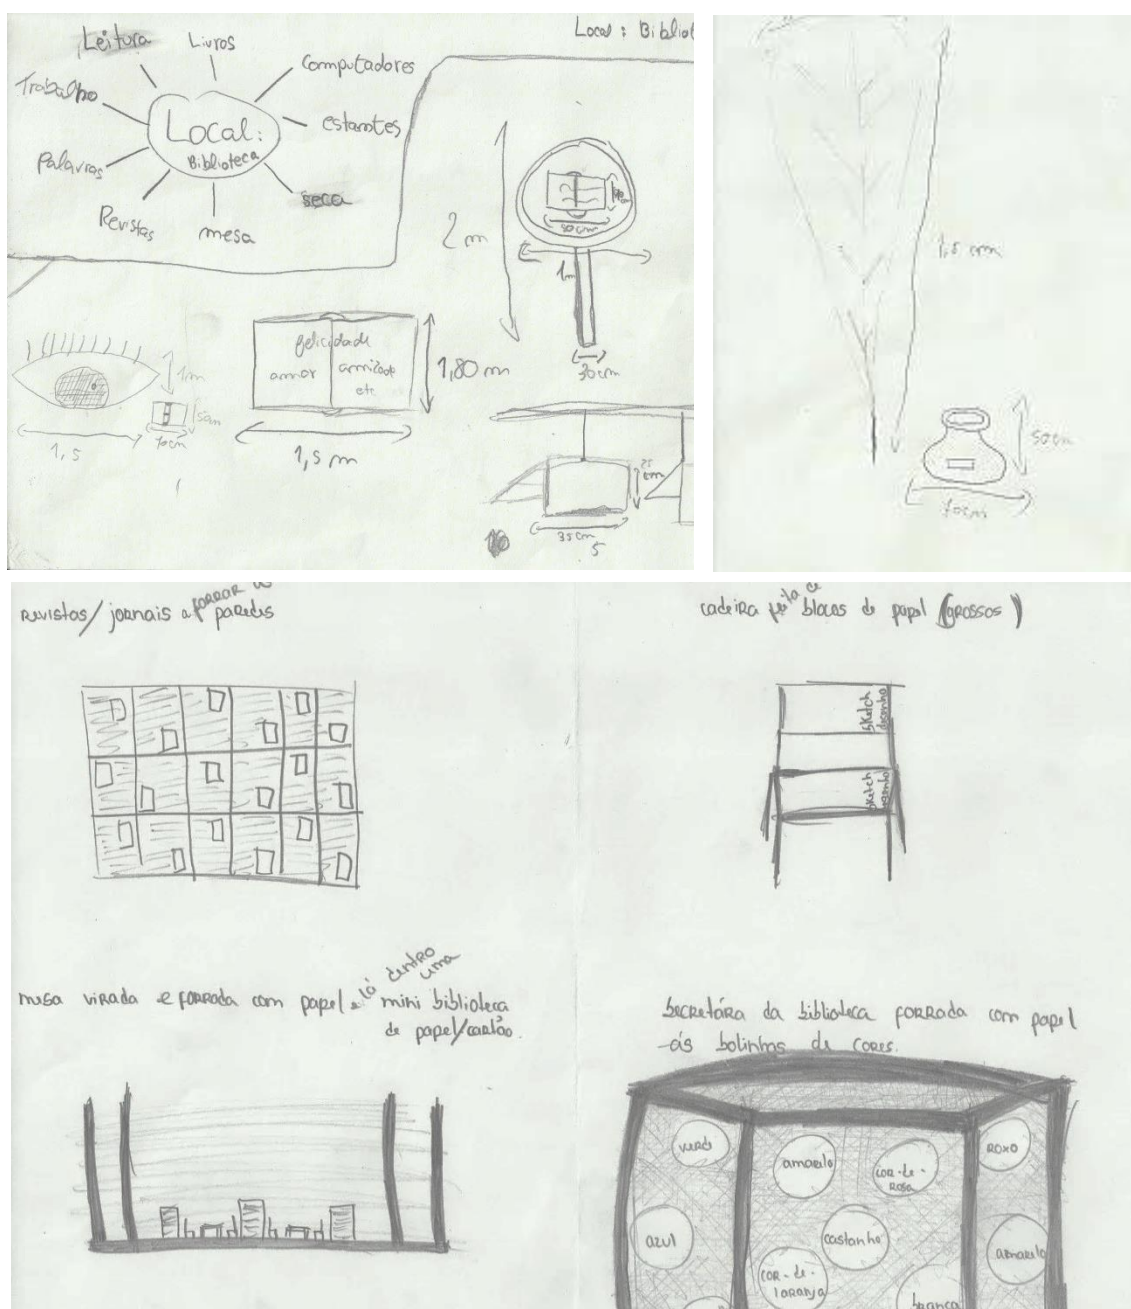 Leitura
Livros
Computadores
estantes
seca
mesa
Revistas
Palavras
Trabalho
Local:
Biblioteca
Local: Bibliot
2 m
80cm
1m
30cm
1m
1,5
5cm
10cm
felicidade
amor
amizade
etc
1,80 m
1,5 m
25
cm
35cm
5
1,5 cm
50cm
70cm
revistas/jornais a forrar
paredes
cadeira feita de blocos de papel (grossos)
sketch
desenho
sketch
desenho
mesa virada e forrada com papel e lá dentro uma
mini biblioteca
de papel/cartão.
secretária da biblioteca forrada com papel
-ás bolinhas de cores.
verde
amarelo
cor-de-
rosa
roxo
azul
castanho
amarelo
cor-de-
laranja
branco